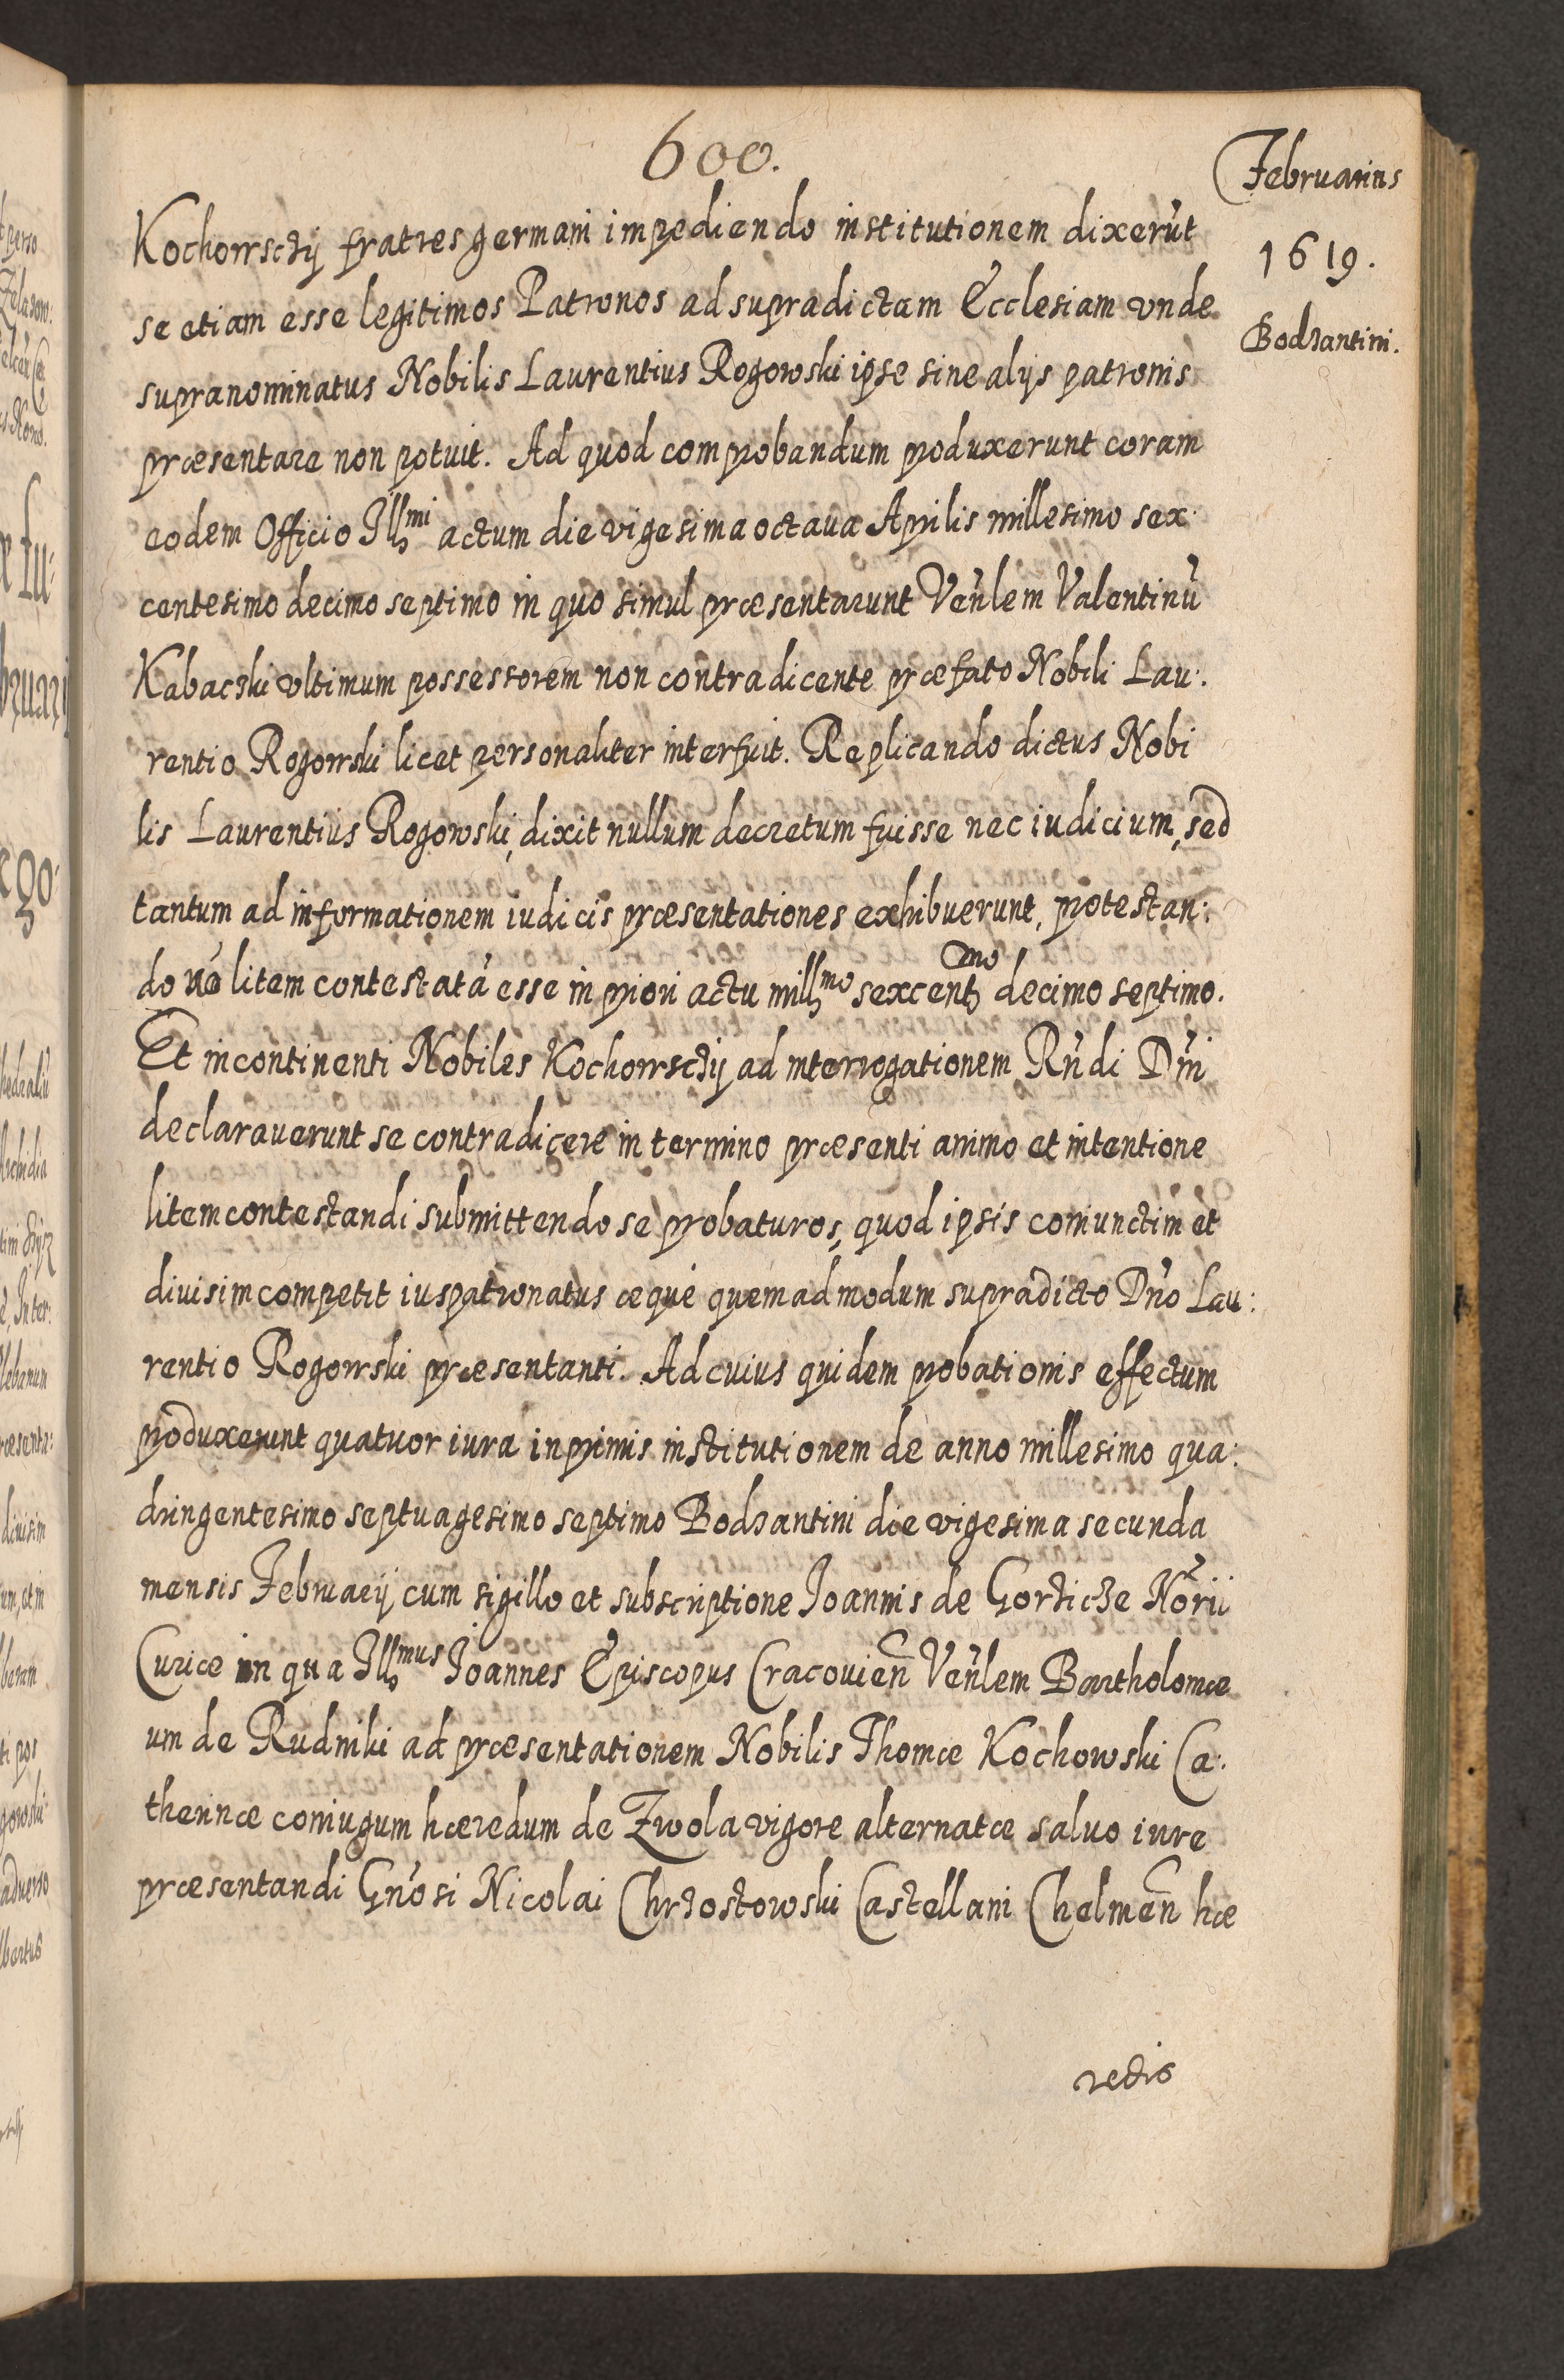 600.
Februarius
1619.
Bodzantini.
Kochowsczÿ fratres germani impediendo institutionem dixerūt
se etiam esse legitimos Patronos ad supradictam Ecclesiam vnde
supranominatus Nobilis Laurentius Rogowski ipse sine alijs patronis
præsentare non potuit. Ad quod comprobandum produxerunt coram
eodem Officio Illmi actum die vigesima octaua Aprilis millesimo sex
centesimo decimo septimo in quo simul præsentarunt Venlem Valentinū
Kabaczki vltimum possessorem non contradicente præfato Nobili Lau:
rentio Rogowski licet personaliter interfuit. Replicando dictus Nobi
lis Laurentius Rogowski, dixit nullum decretum fuisse nec iudicium, sed
tantum ad informationem iudicis præsentationes exhibuerunt, protestan:
do nō litem contestatā esse in priori actu millmo sexcentmo decimo septimo.
Et incontinenti Nobiles Kochowsczÿ ad interrogationem Rñdi Dñi
declarauerunt se contradicere in termino præsenti animo et intentione
litem contestandi submittendo se probaturos, quod ipsis coniunctim et
diuisim competit iuspatronatus æque quemadmodum supradicto Dño Lau:
rentio Rogowski præsentanti. Ad cuius quidem probationis effectum
produxerunt quatuor iura inprimis institutionem de anno millesimo qua:
dringentesimo septuagesimo septimo Bodzantini die vigesima secunda
mensis Februarij cum sigillo et subscriptione Joannis de Gorzicze Norii
Curiæ in qua Illmus Joannes Episcopus Cracouien̄ Venlem Bartholomæ
um de Rudniki ad præsentationem Nobilis Thomæ Kochowski Ca:
therinæ coniugum hæredum de Zwola vigore alternatæ saluo iure
præsentandi Gñosi Nicolai Chrzostowski Castellani Chelmen̄ hæ
redis